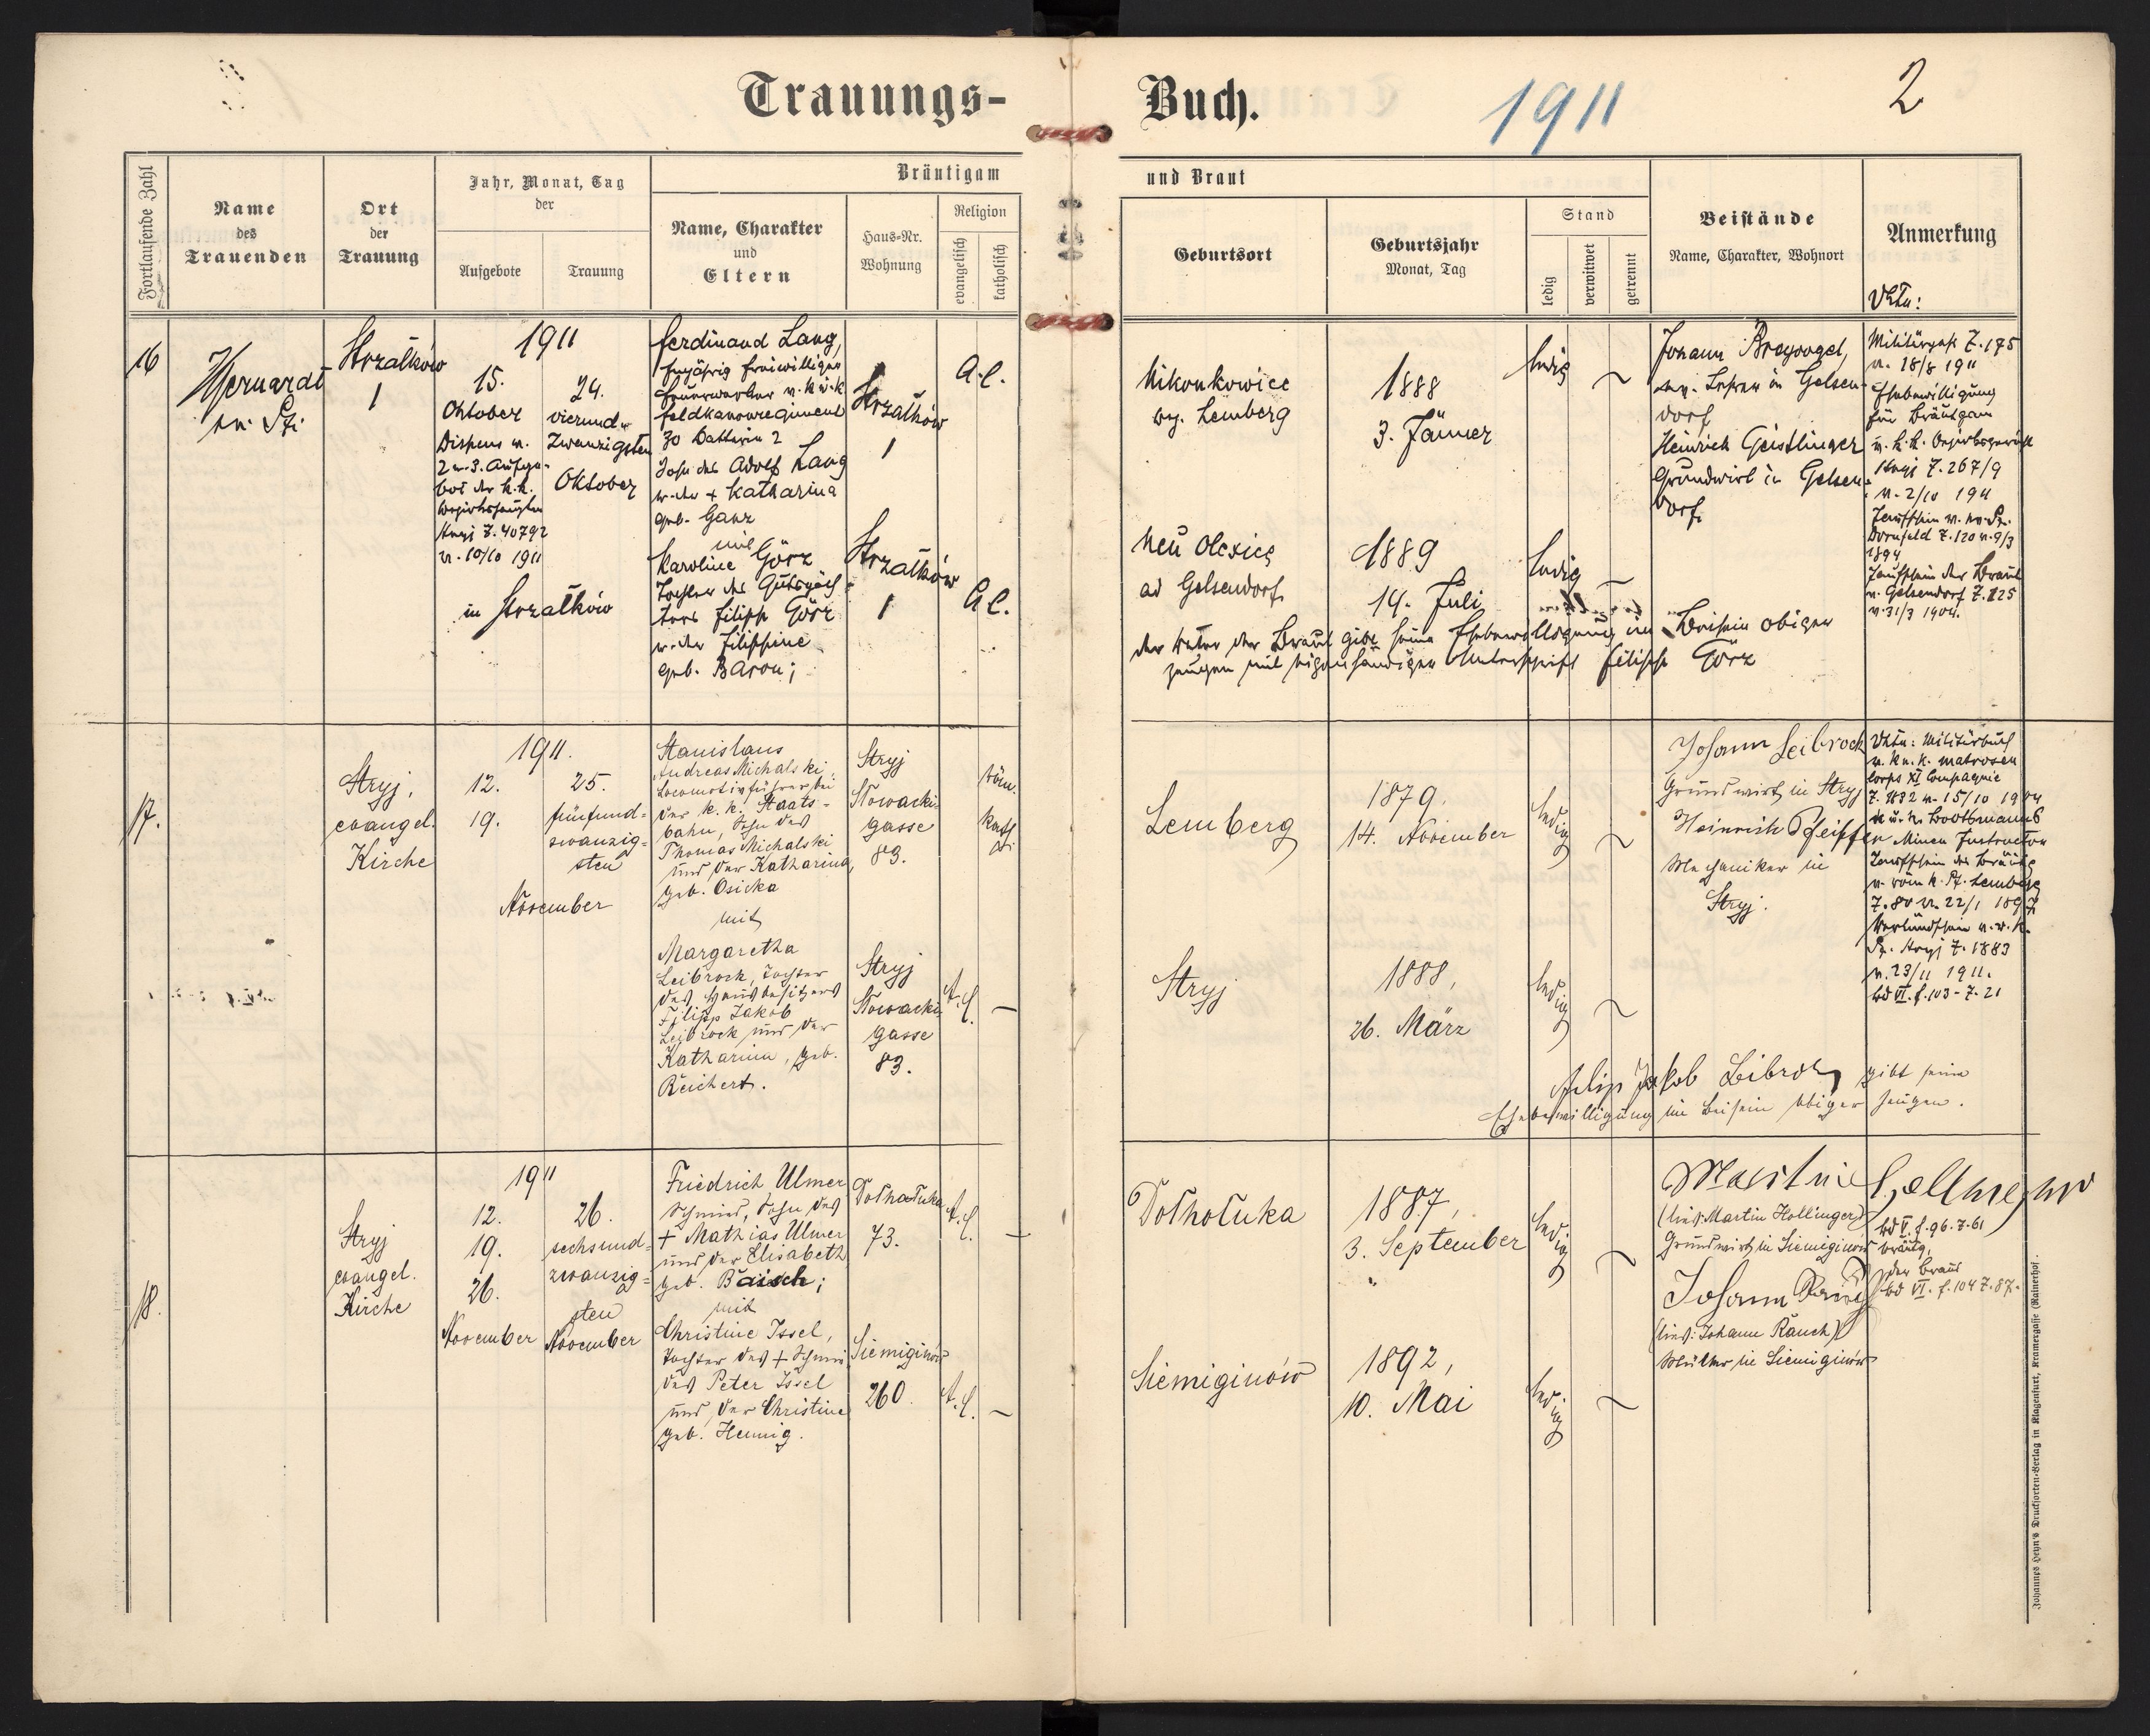 Trauungs-
Buch.
1911
2
Fortlaufende Zahl
Name
des
Trauenden
Ort
der
Trauung
Jahr, Monat, Tag
der
Aufgebote
Trauung
Bräutigam
Name, Charakter
und
Eltern
Haus-Nr.
Wohnung
Religion
evangelisch
katholisch
und Braut
Geburtsort
Geburtsjahr
Monat, Tag
Stand
ledig
verwitwet
getrennt
Beistände
Name, Charakter, Wohnort
Anmerkung
16
Strzałków
1
1911
15.
Oktober
Dispens v.
2 u. 3. Aufge-
bot der k.k.
Stryj Z. 40792
v. 10/10 1911
24.
vierund-
zwanzigsten
Oktober
in Strzałków
Ferdinand Lang,
feldkanonregiment
30 Batterie 2
Sohn des Adolf Lang
u. der + Katharina
geb. Ganz
mit
Karoline Görz
Tochter des Gutspäch-
ters Filipp Görz
u. der Filippine
geb. Baron;
Strzałków
1
Strzałków
1
A.C.
A.C.
Nikonkowice
bg. Lemberg
1888
3. Jänner
ledig
Neu Olexice
ad Gelsendorf
1889
14. Juli
ledig
Johann Breyvogel,
ev. Lehrer in Gelsen-
dorf
Heinrich Geistlinger
Grundwirt in Gelsen-
dorf
Militärpaß Z. 175
v. 18/8 1911
Ehebewilligung
für Bräutgam
v. k.k. Bezirksgericht
Stryj Z. 267/9
v. 2/10 1911
Dornfeld Z. 120 v. 9/3
1894
Taufschein der Braut
v. Gelsendorf Z. 125
v. 31/3 1904.
der Vater der Braut gibt seine Ehebewilligung im Beisein obiger
Zeugen mit eigenhändiger Unterschrift Filipp Görz
17.
Stryj,
evangel.
Kirche
1911.
12.
19.
25.
fünfund-
zwanzig-
sten
November
Stanislaus
Andreas Michalski,
Locomotivführer bei
der k. k. Staats-
bahn, Sohn des
Thomas Michalski
und der Katharina,
geb. Osicka
mit
Margaretha
Leibrock, Tochter
des Hausbesitzers
Filipp Jakob
Leibrock und der
Katharina, geb.
Reichert.
Stryj
Słowacki-
gasse
83.
Stryj
Słowacki
gasse
83.
röm.
kath.
A.C.
Lemberg
1879.
14. November
ledig
Stryj
1888,
26. März
ledig
Johann Leibrock
Grundwirt in Stryj
Heinrich Pfeiffer
Mechaniker in
Stryj.
v. k. u. k. Matrosen
Corps XI Compagnie
Z. 1832 v. 15/10 1904
k. u. k. Bootsmanns
Minen Instructor
Taufschein des Bräutg
v. röm k. Pf. Lemberg
Z. 80 v. 22/1 1897
Verkündschein v. r. k.
Pf. Stryj Z. 1883
v. 23/11 1911.
bd VI. f. 103 - Z. 21
Filip Jakob Leibrock gibt seine
Ehebewilligung im Beisein obiger Zeugen.
18.
Stryj
evangel.
Kirche
1911
12.
19.
26.
November
26.
sechsund-
zwanzig-
sten
November
Friedrich Ulmer
Schmied, Sohn des
+ Mathias Ulmer
und der Elisabeth
geb. Baisch;
mit
Christine Issel,
Tochter des + Schmie
des Peter Issel
und der Christine
geb. Hennig.
Dołhołuka
73.
Siemiginów
260.
A.C.
A.C.
Dołhołuka
1887,
3. September
ledig
Siemiginów
1892,
10. Mai
ledig
Martin Hollinger
(lies: Martin Hollinger)
Grundwirt in Siemiginów
Johann Rauch
(lies: Johann Rauch)
Müller in Siemiginów
bd V. f. 96. Z. 61
bräutg.
der Braut
bd VI. f. 104 Z. 87.
Johannes Heyn's Drucksorten-Verlag in Klagenfurt, Kramergasse (Rainerhof.